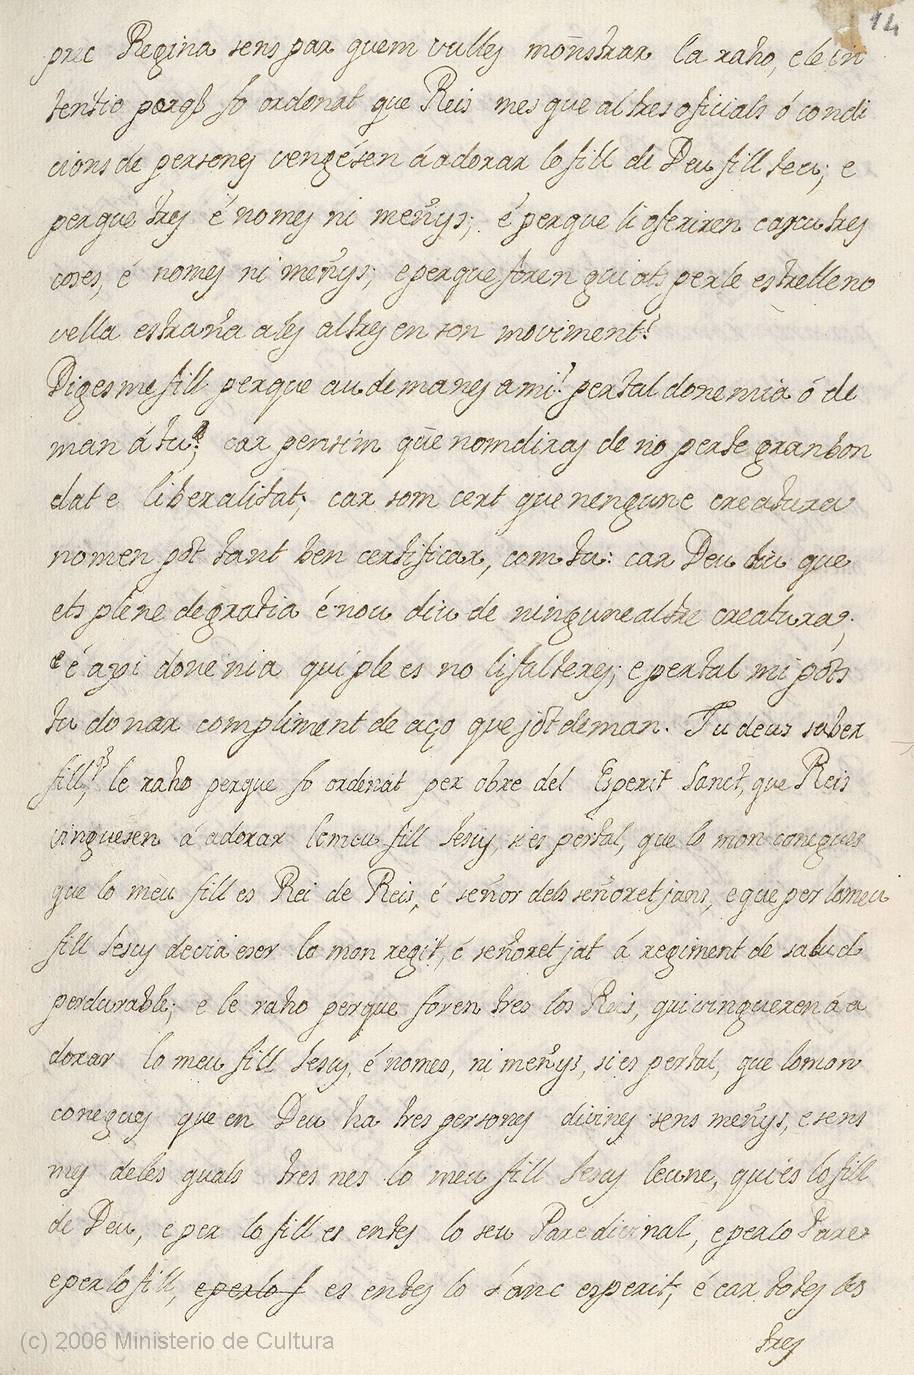 14
prec Regina sens par quem vulles moñstrar la raho, e le in
tentio perq̃ fo ordonat que Reis mes que altres oficials ó condi
cions de persones vengésen á adorar lo fill de Deu fill teu; e
perque tres é nomes ni meñys; é perque li oferiren cascu tres
coses, é nomes ni meñys; e perque foren guiats per le estrelle no
vella estraña a les altres en son moviment?
Diges me fill perque au demanes a mi? per tal done mia ó de
man á tu? car pensim que nomdiras de no per te gran bon
dat e liberalitat; car som cert que nengune creatura
nomen pot tant ben certificar, com tu: car Deu diu que
ets plene de gratia é nou diu de ningune altre creatura;
é axi done mia qui ple es no li falteres; e per tal mi pots
tu donar compliment de aço que jot deman. Tu deus saber
fill, le raho perque fo ordenat per obre del Esperit Sanct, que Reis
vinguesen á adorar lo meu fill Jesus, si es pertal, que lo mon conegues
que lo meu fill es Rei de Reis, é señor dels señoretjans, e que per lo meu
fill Jesus devia eser lo mon regit, é señoretjat á regiment de salud
perdurable; e le raho perque foren tres los Reis, qui vingueren á a
dorar lo meu fill Jesus, é nomes, ni meñys, si es pertal, que lo mon
conegues que en Deu ha tres persones divines sens meñys, e sens
mes deles quals tres nes lo meu fill Jesus leune, qui es lo fill
de Deu, e per lo fill es entes lo seu Pare divinal, e per lo Pare
e per lo fill, e per lo f es entes lo sanc esperit; é car totes les
tres
(c) 2006 Ministerio de Cultura